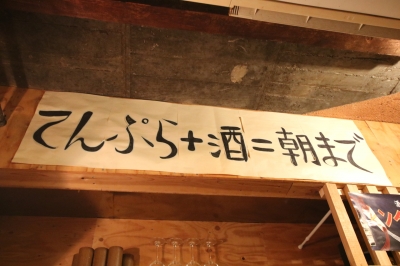 てんぷら+酒=朝まで